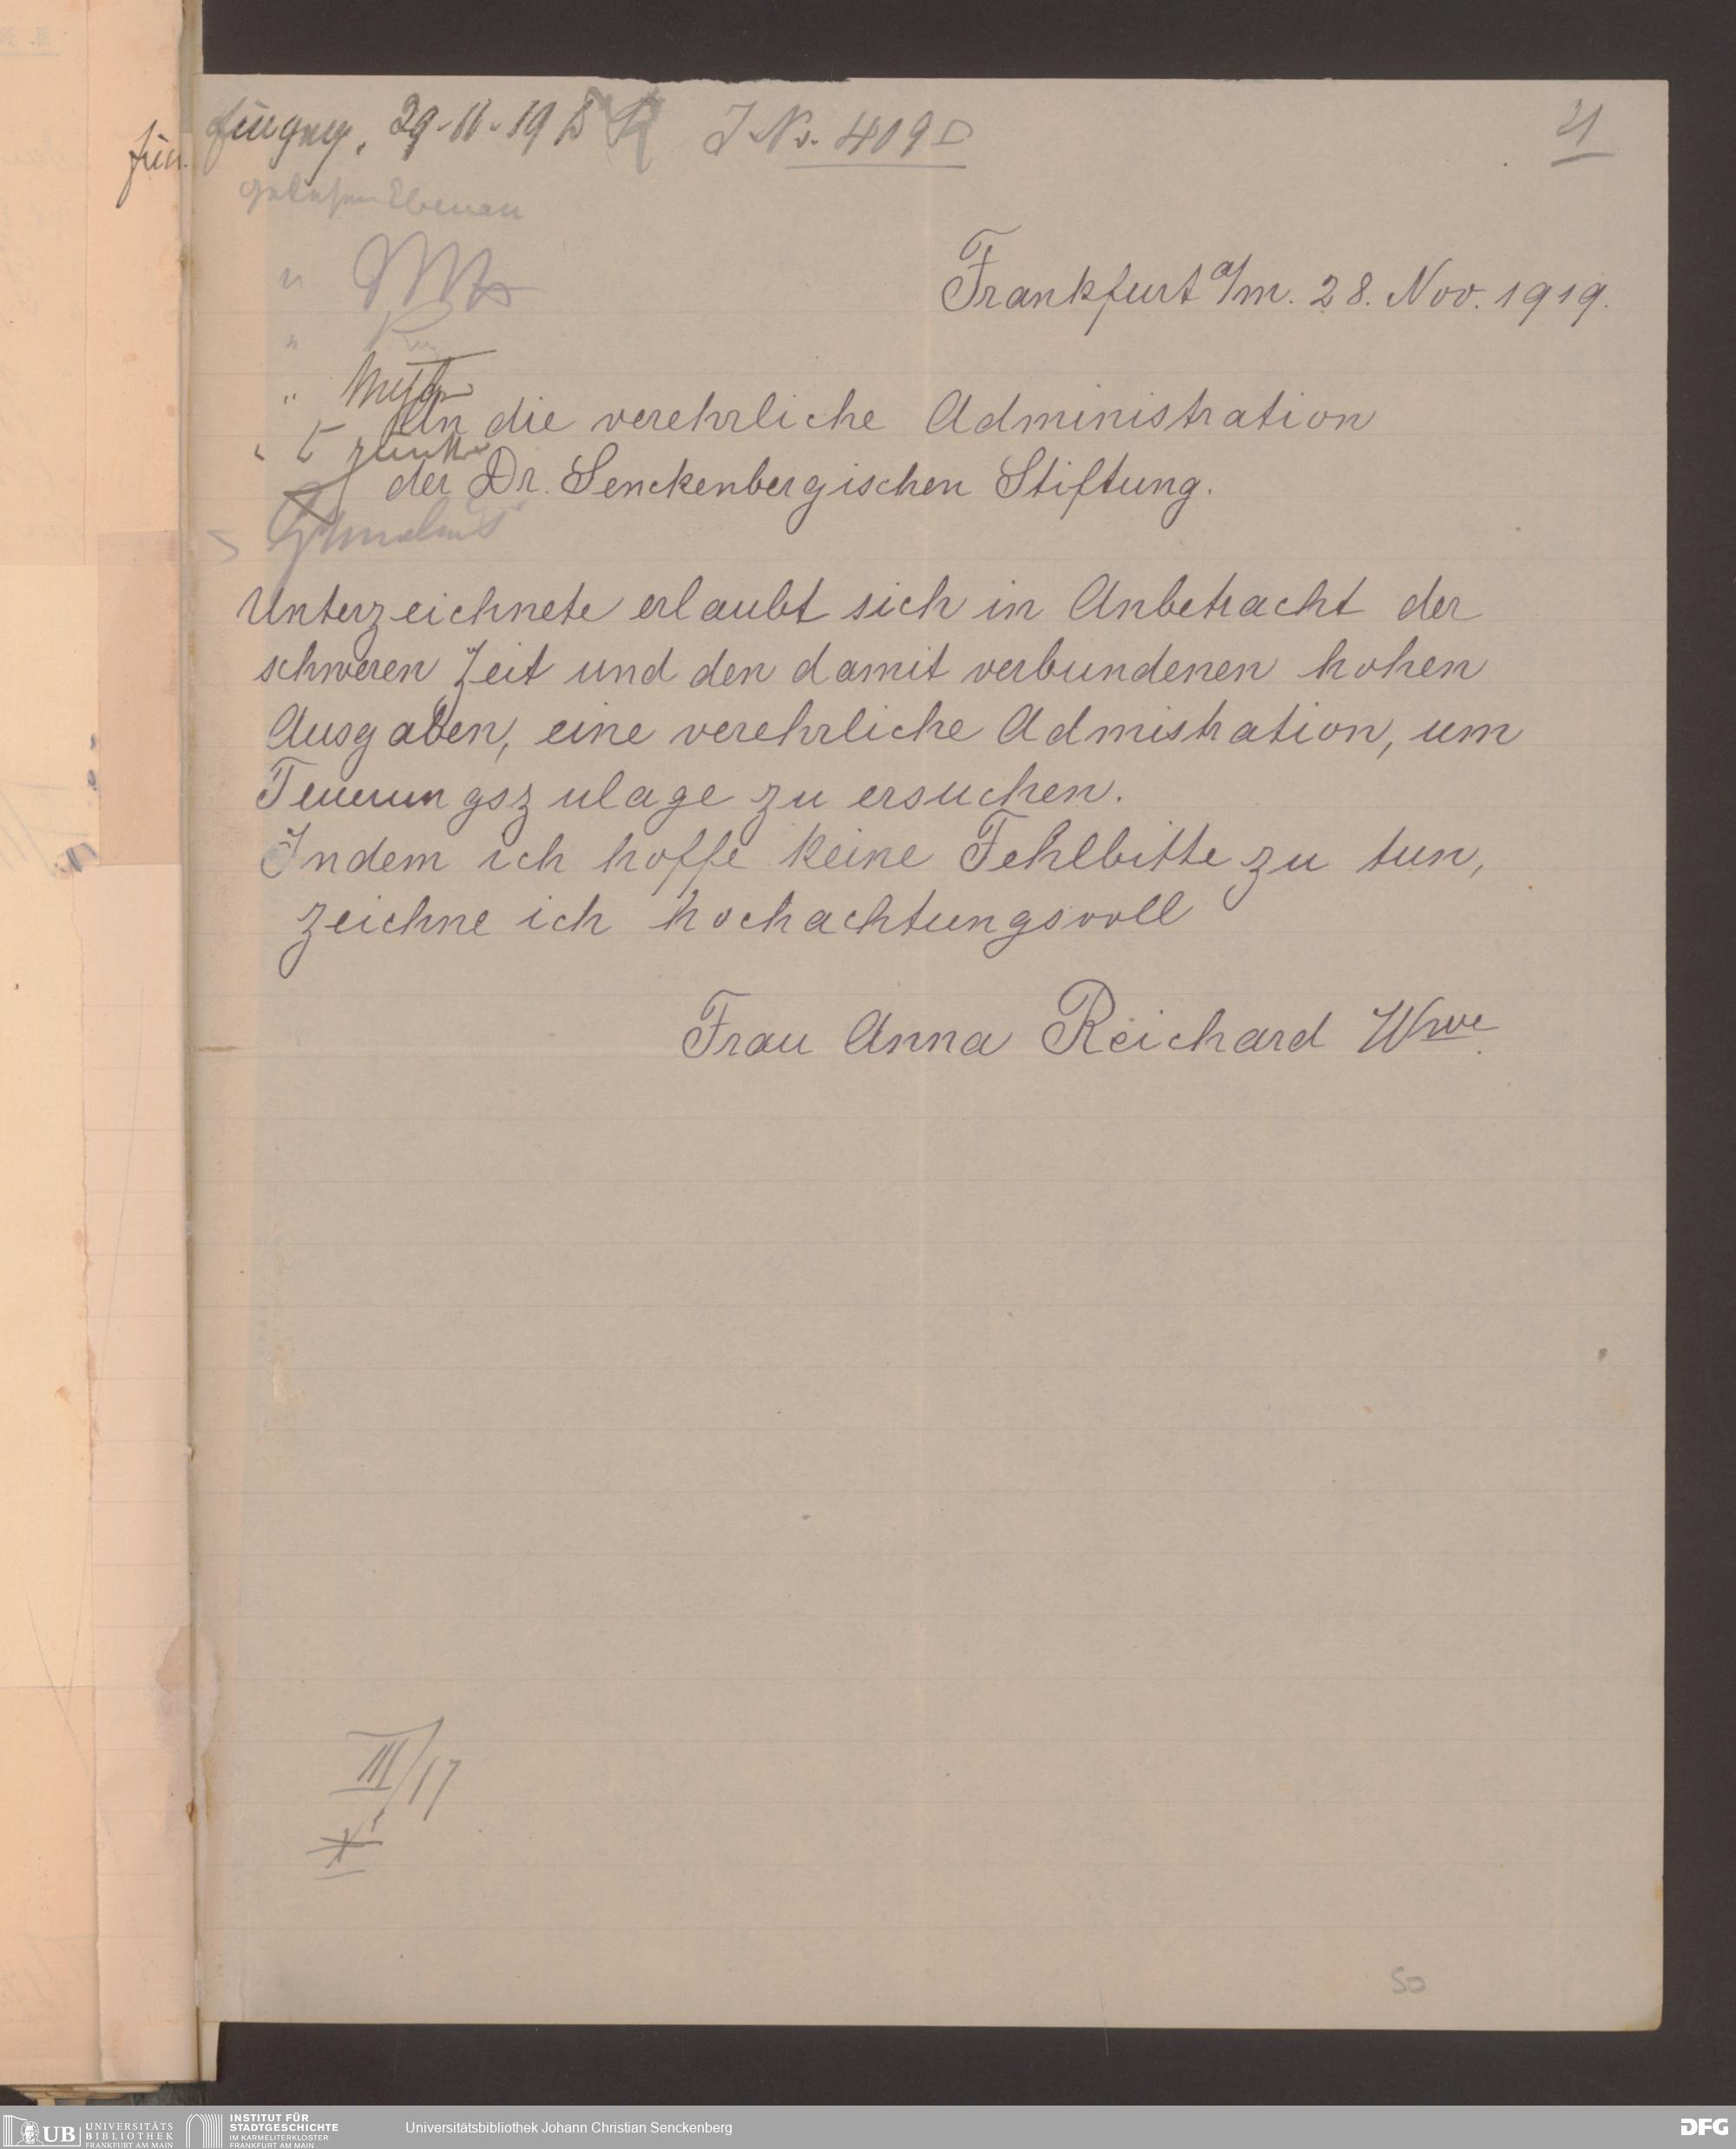 29-11-19 J No. 409
21
gelesen Ebenau
Frankfurt a/m. 28. Nov. 1919.
An die verehrliche Administration
der Dr. Senckenbergischen Stiftung.
Unterzeichnete erlaubt sich in Anbetracht der
schweren Zeit und den damit verbundenen hohen
Ausgaben, eine verehrliche Admistration, um
Teuerungszulage zu ersuchen.
Indem ich hoffe keine Fehlbitte zu tun,
zeichne ich hochachtungsvoll
Frau Anna Reichard Wwe.
III/17
50
UB UNIVERSITÄTS
BIBLIOTHEK
FRANKFURT AM MAIN
INSTITUT FÜR
STADTGESCHICHTE
IM KARMELITERKLOSTER
FRANKFURT AM MAIN
Universitätsbibliothek Johann Christian Senckenberg
DFG